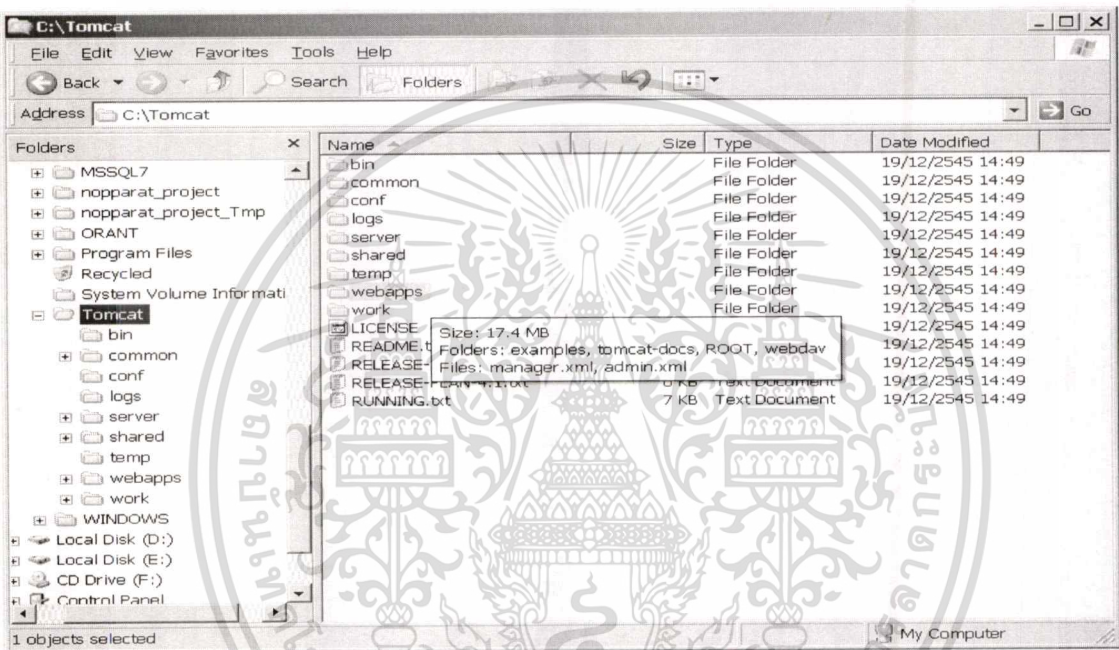 C:\Tomcat
File Edit View Favorites Tools Help
Back Search Folders
Address C:\Tomcat Go
Folders
MSSQL7
nopparat_project
nopparat_project_Tmp
ORANT
Program Files
Recycled
System Volume Informati
Tomcat
bin
common
conf
logs
server
shared
temp
webapps
work
WINDOWS
Local Disk (D:)
Local Disk (E:)
CD Drive (F:)
Control Panel
Name Size Type Date Modified
bin File Folder 19/12/2545 14:49
common File Folder 19/12/2545 14:49
conf File Folder 19/12/2545 14:49
logs File Folder 19/12/2545 14:49
server File Folder 19/12/2545 14:49
shared File Folder 19/12/2545 14:49
temp File Folder 19/12/2545 14:49
webapps File Folder 19/12/2545 14:49
work File Folder 19/12/2545 14:49
LICENSE 19/12/2545 14:49
README.t 19/12/2545 14:49
RELEASE- 19/12/2545 14:49
RELEASE-PLAN-4.1.txt KB Text Document 19/12/2545 14:49
RUNNING.txt 7 KB Text Document 19/12/2545 14:49
Size: 17.4 MB
Folders: examples, tomcat-docs, ROOT, webdav
Files: manager.xml, admin.xml
1 objects selected
My Computer